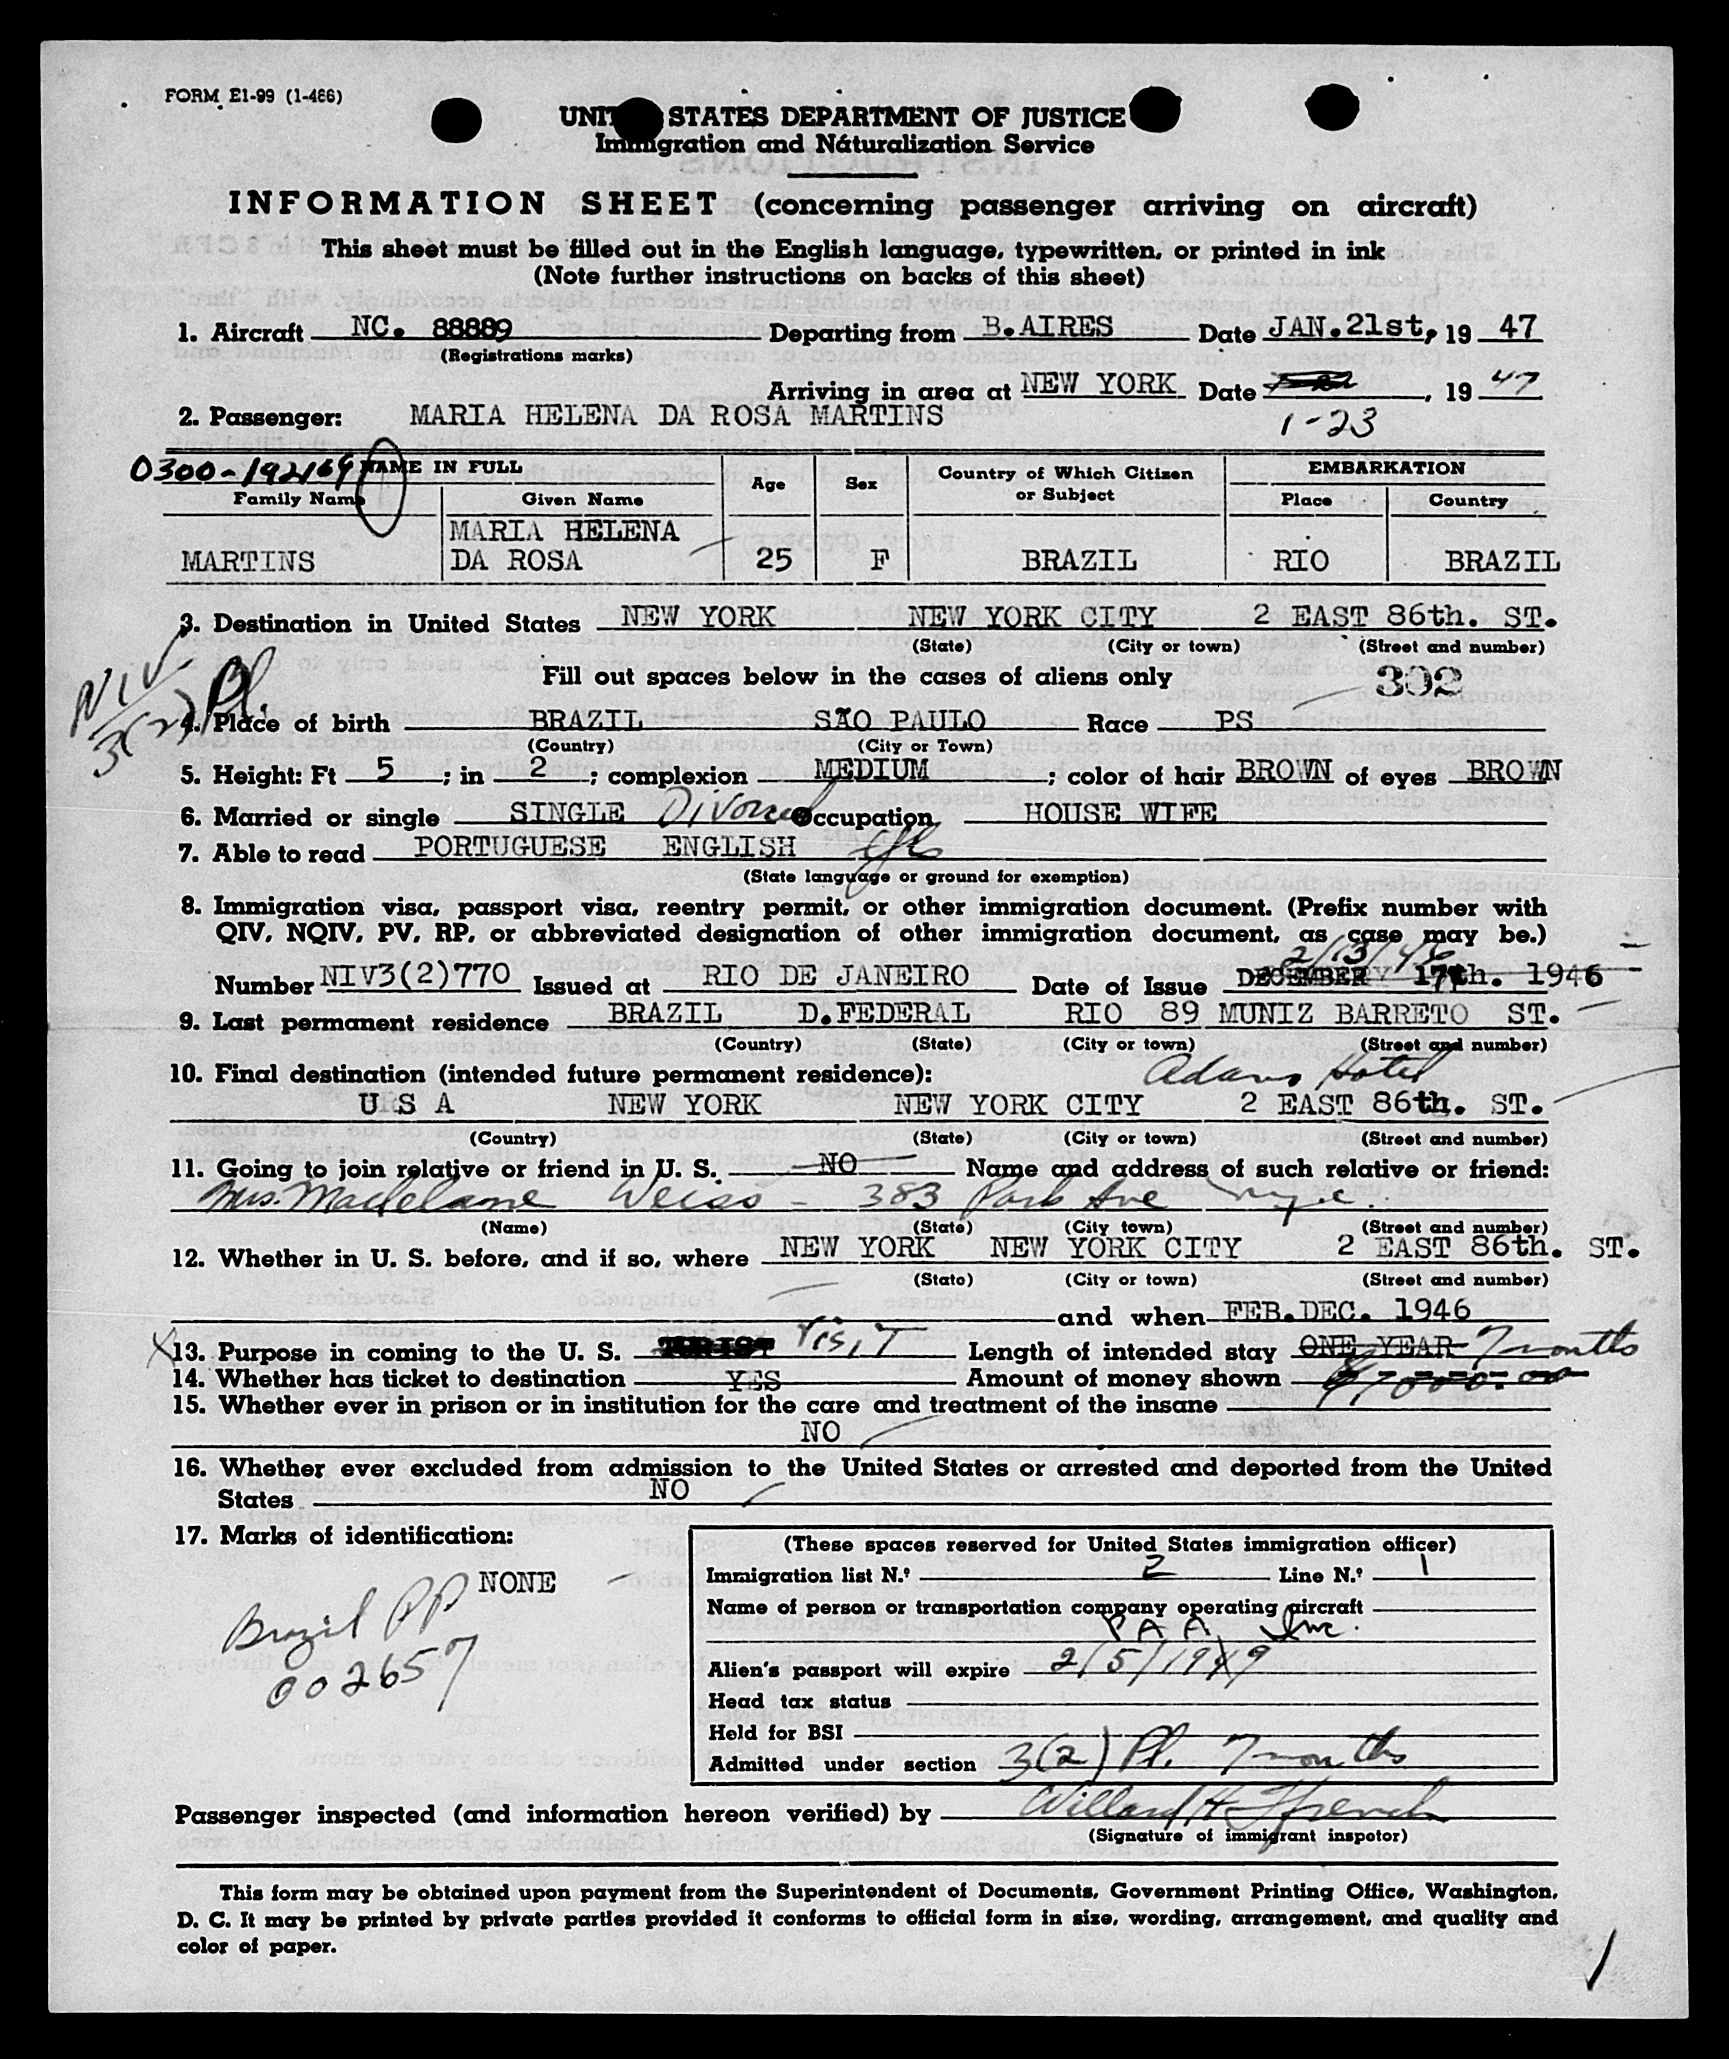 FORM E1-99 (1-466)
UNITED STATES DEPARTMENT OF JUSTICE
Immigration and Naturalization Service
INFORMATION SHEET (concerning passenger arriving on aircraft)
This sheet must be filled out in the English language, typewritten, or printed in ink
(Note further instructions on backs of this sheet)
1. Aircraft NC. 88889 Departing from B.AIRES Date JAN.21st, 19 47
(Registrations marks)
Arriving in area at NEW YORK Date , 19 47
2. Passenger: MARIA HELENA DA ROSA MARTINS 1-23
0300-192169 NAME IN FULL Age Sex Country of Which Citizen or Subject EMBARKATION
Family Name Given Name Place Country
MARIA HELENA
MARTINS DA ROSA 25 F BRAZIL RIO BRAZIL
3. Destination in United States NEW YORK NEW YORK CITY 2 EAST 86th. ST.
(State) (City or town) (Street and number)
NIV 3(2) Pl.
Fill out spaces below in the cases of aliens only 392
4. Place of birth BRAZIL SÃO PAULO Race PS
(Country) (City or Town)
5. Height: Ft 5 ; in 2 ; complexion MEDIUM ; color of hair BROWN of eyes BROWN
6. Married or single SINGLE Divorced Occupation HOUSE WIFE
7. Able to read PORTUGUESE ENGLISH
(State language or ground for exemption)
8. Immigration visa, passport visa, reentry permit, or other immigration document. (Prefix number with
QIV, NQIV, PV, RP, or abbreviated designation of other immigration document, as case may be.)
2/13/46
Number NIV3(2)770 Issued at RIO DE JANEIRO Date of Issue DECEMBER 17th. 1946
9. Last permanent residence BRAZIL D.FEDERAL RIO 89 MUNIZ BARRETO ST.
(Country) (State) (City or town) (Street and number)
10. Final destination (intended future permanent residence): Adams Hotel
U S A NEW YORK NEW YORK CITY 2 EAST 86th. ST.
(Country) (State) (City or town) (Street and number)
11. Going to join relative or friend in U. S. NO Name and address of such relative or friend:
Mrs. Madelaine Weiss - 383 Park Ave nyc.
(Name) (State) (City town) (Street and number)
12. Whether in U. S. before, and if so, where NEW YORK NEW YORK CITY 2 EAST 86th. ST.
(State) (City or town) (Street and number)
and when FEB.DEC. 1946
X 13. Purpose in coming to the U. S. Visit Length of intended stay ONE YEAR 7 months
14. Whether has ticket to destination YES Amount of money shown
15. Whether ever in prison or in institution for the care and treatment of the insane
NO
16. Whether ever excluded from admission to the United States or arrested and deported from the United
States NO
17. Marks of identification:
NONE
Brazil PP
002657
(These spaces reserved for United States immigration officer)
Immigration list N.º 2 Line N.º 1
Name of person or transportation company operating aircraft
P A A Inc.
Alien's passport will expire 2/5/1949
Head tax status
Held for BSI
Admitted under section 3(2) Pl. 7 months
Passenger inspected (and information hereon verified) by Willard H. Ffrench
(Signature of immigrant inspotor)
This form may be obtained upon payment from the Superintendent of Documents, Government Printing Office, Washington,
D. C. It may be printed by private parties provided it conforms to official form in size, wording, arrangement, and quality and
color of paper.
1